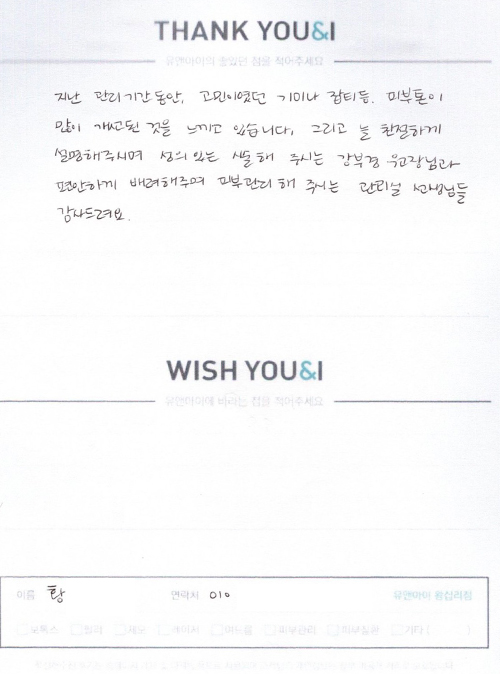 THANK YOU&I
유앤아이의 좋았던 점을 적어주세요
지난 관리기간동안, 고민이었던 기미나 잡티등. 피부톤이
많이 개선된 것을 느끼고 있습니다. 그리고 늘 친절하게
설명해주시며 성의 있는 시술해 주시는 강부경 원장님과
편안하게 배려해주며 피부관리 해 주시는 관리실 선생님들
감사드려요.
WISH YOU&I
유앤아이에 바라는 점을 적어주세요
이름 황 연락처 010 유앤아이 왕십리점
보톡스 필러 제모 레이저 여드름 피부관리 피부질환 기타 ( )